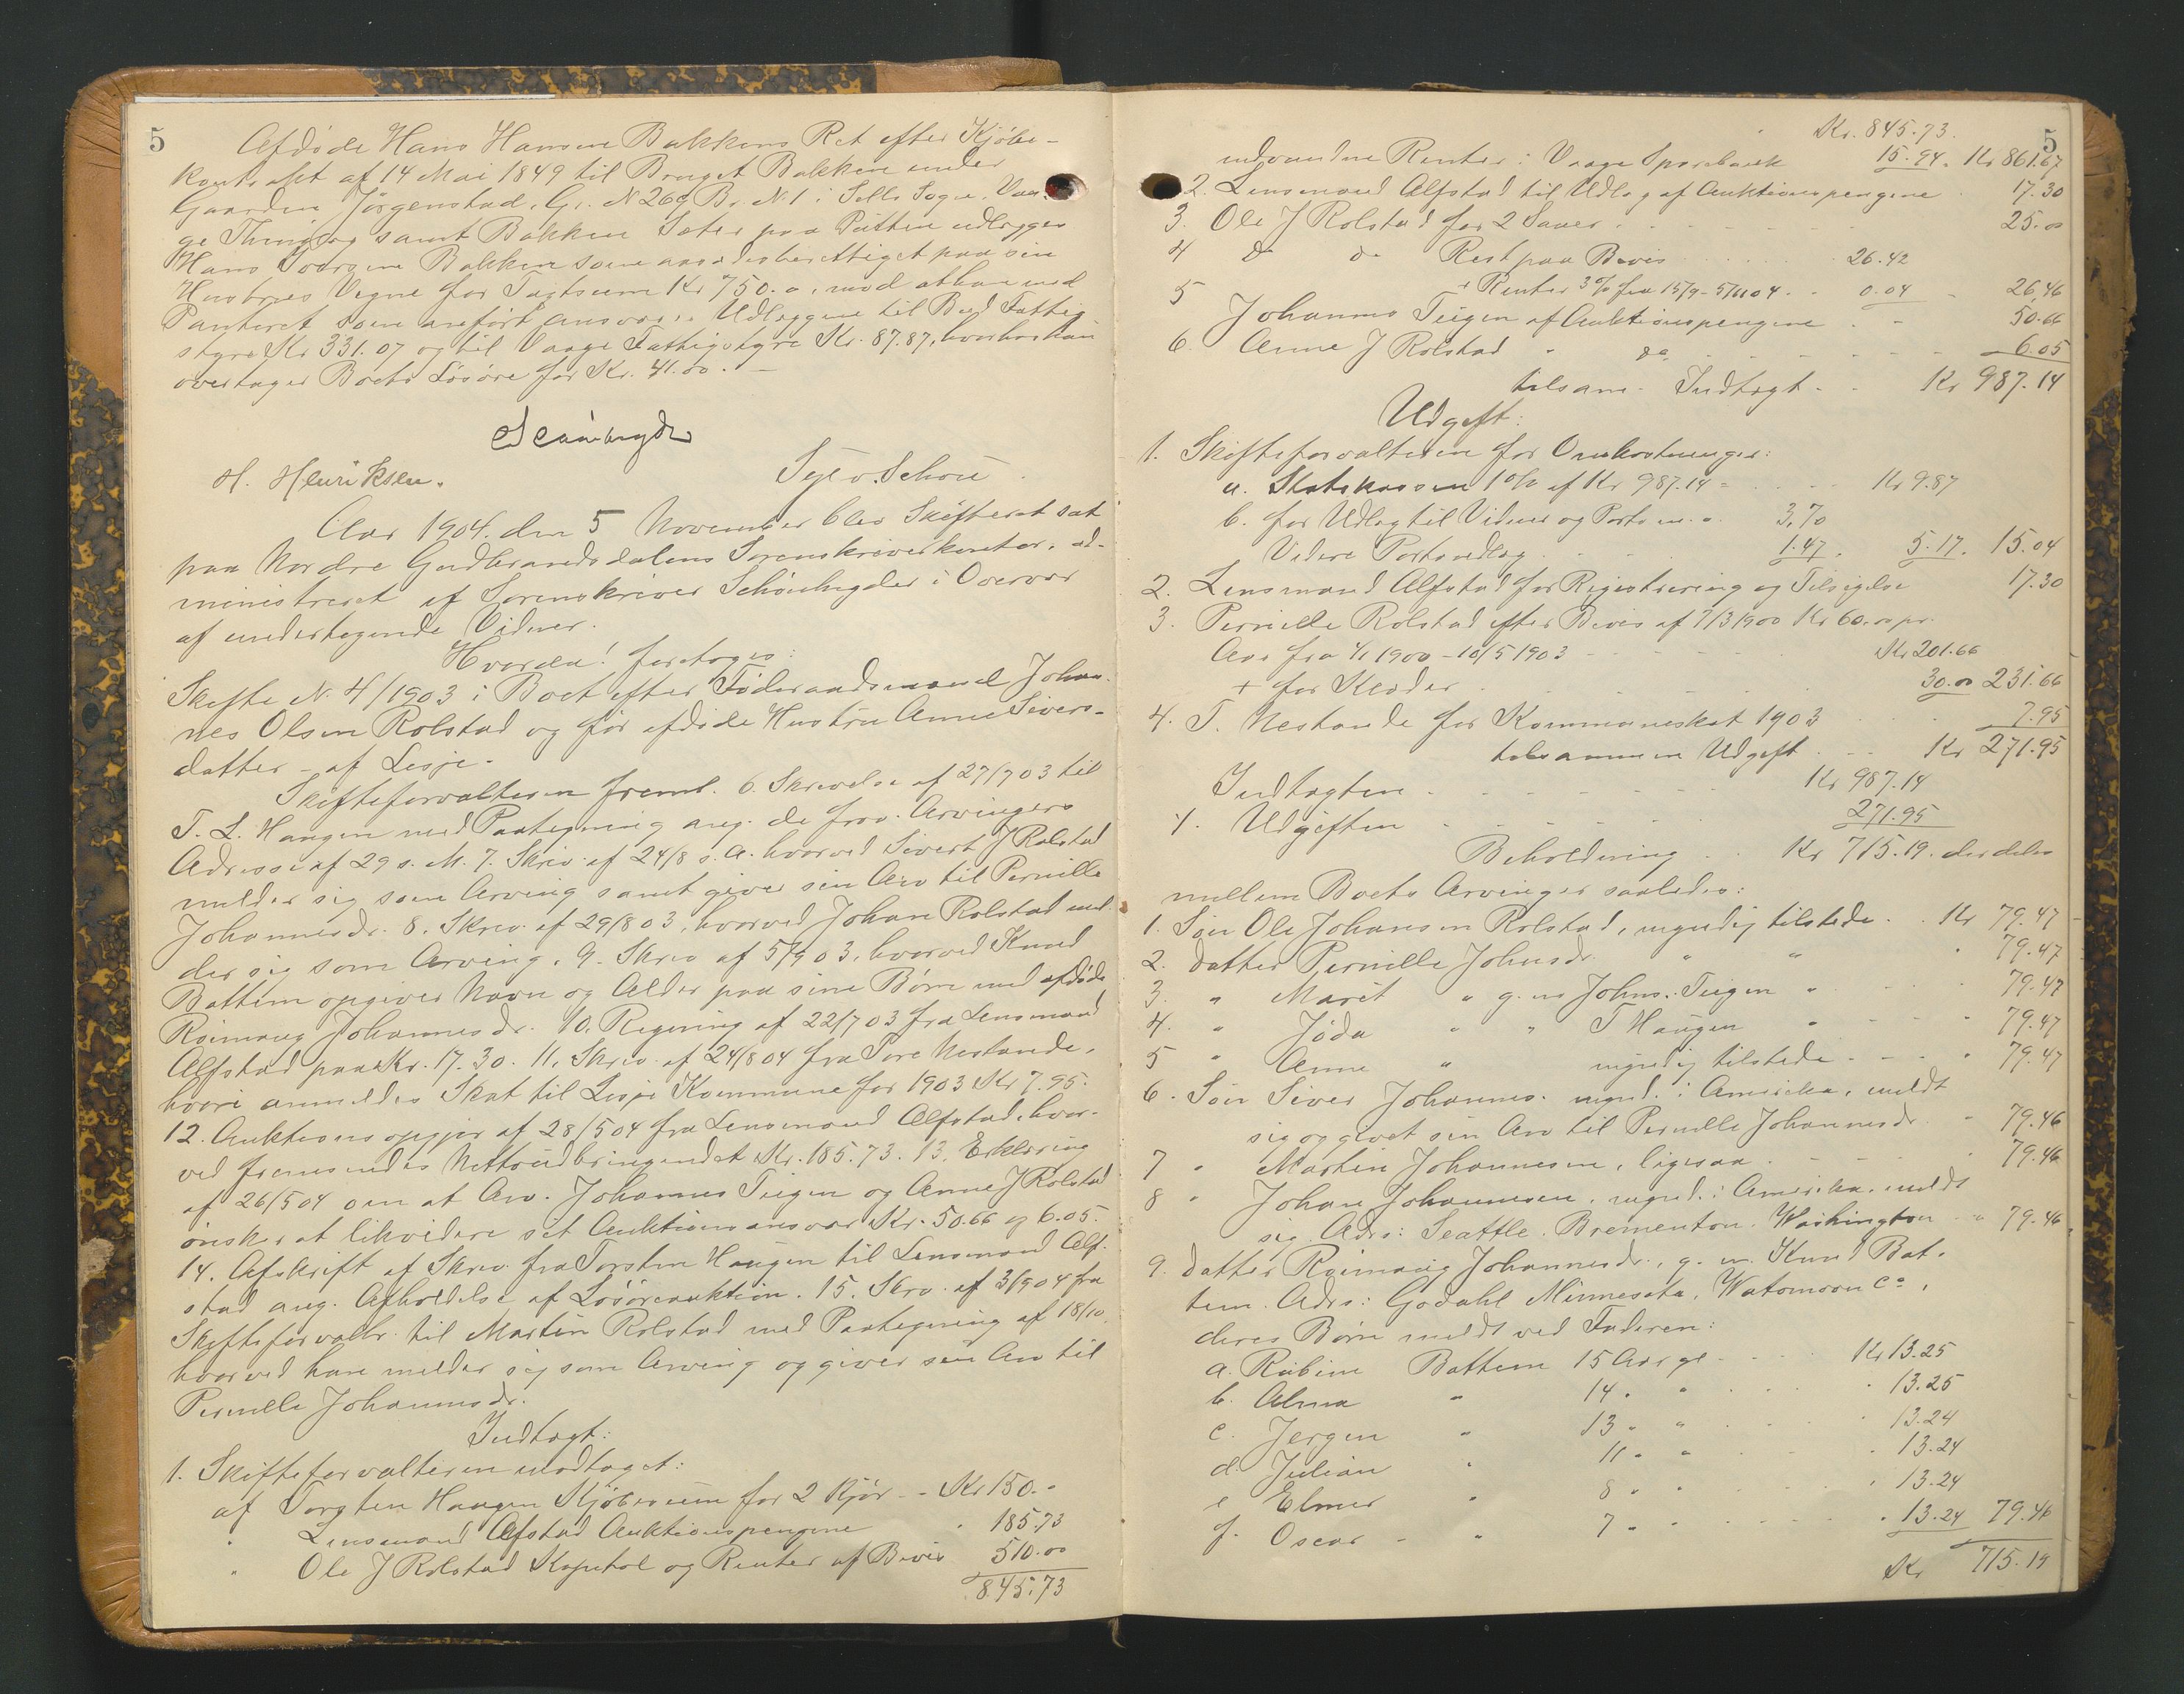 5
Afdøde Hans Hansen Bakkens Ret efter Kjøbe-
kontrakt af 14 Mai 1849 til Bruget Bakken under
Gaarden Jørgenstad, Gr. N 269 Br. N. 1 i Sells Sogn, Vaa-
ge Thinglag samt Bakken Sæter paa Putten udlægges
Hans Bakken som aasædesberettiget paa sin
Hustrues Vegne for Taxtsum Kr 750.00, mod at han ved
Panteret som anført ansvarer Udlæggene til Fattig-
styre Kr 331.07 og til Vaage Fattigstyre Kr. 87.87, hvorhos han
overtager Boets Løsøre for Kr. 41.00. —
H. Henriksen.
Sylv. Schou
Aar 1904. den 5 November blev Skifteret sat
paa Nordre Gudbrandsdalens Sorenskriverkontor, ad-
ministreret af Sorenskriver Schønheyder i Overvær
af undertegnede Vidner.
Hvorda! foretoges:
Skifte N. 4/1903 i Boet efter Føderaadsmand Johan-
nes Olsen Rolstad og før afdøde Hustru Anne Sivers-
datter – af Lesje.
Skifteforvalteren freml. 6. Skrivelse af 27/7 03 til
T. L. Haugen med Paategning ang. de frav. Arvingers
Adresse af 29 s. M. 7. Skriv. af 24/8 s. A. hvorved Sivert J Rolstad
melder sig som Arving samt giver sin Arv til Pernille
Johannesdr. 8. Skriv. af 29/8 03, hvorved Johan Rolstad mel-
der sig som Arving. 9. Skriv af 5/9 03, hvorved Knud
Battem opgiver Navn og Alder paa sine Børn med afdøde
Roimaug Johannesdr. 10. Regning af 22/7 03 fra Lensmand
Alfstad paa Kr. 17.30. 11. Skriv. af 24/8 04 fra Tore Nestande,
hvori anmeldes Skat til Lesje Kommune for 1903 Kr 7.95.
12. Auktionsopgjør af 28/5 04 fra Lensmand Alfstad, hvor-
ved fremsendes Nettoudbringendet Kr. 185.73. 13. Erklæring
af 26/5 04 om at Arv. Johannes Teigen og Anne J Rolstad
ønsker at likvidere sit Auktionsansvar Kr. 50.66 og 6.05.
14. Afskrift af Skriv. fra Torsten Haugen til Lensmand Alf-
stad ang. Afholdelse af Løsøreauktion. 15. Skrv. af 3/9 04 fra
Skifteforvaltr. til Martin Rolstad med Paategning af 18/10,
hvorved han melder sig som Arving og giver sin Arv til
Pernille Johannesdr.
Indtægt:
1. Skifteforvalteren modtaget:
af Torsten Haugen Kjøbesum for 2 Kjør - - Kr 150.-
" Lensmand Alfstad Auktionspengene " 185.73
" Ole J Rolstad Kapital og Renter af Bevis 510.00
845.73
Kr. 845.73.
5
indvundne Renter i Vaage Sparebank 15.94. Kr 861.67
2. Lensmand Alfstad til Udlæg af Auktionspengene 17.30
3. Ole J Rolstad for 2 Sauer 25.00
4 do do Rest paa Bevis 26.42
+ Renter 3% fra 15/9 - 5/11 04 - 0.04 26.46
5 Johannes Teigen af Auktionspengene 50.66
6. Anne J Rolstad " do 6.05
tilsam. Indtægt - Kr 987.14
Udgift:
1. Skifteforvalteren for Omkostninger:
a. Statskassen 1% af Kr 987.14 = Kr 9.87
b. for Udlæg til Vidner og Porto m.v. 3,70
Videre Portoudlæg 1.47. 5.17. 15.04
2. Lensmand Alfstad for Registrering og Tilsigelse 17.30
3. Pernille Rolstad efter Bevis af 7/3 1900 Kr 60.00 pr.
Aar fra 1/1 1900 - 10/5 1903 Kr 201.66
+ for Klæder 30.00 231.66
4. T. Nestande for Kommuneskat 1903 7.95
tilsammen Udgift - Kr 271.95
Indtægten Kr 987.14
÷. Udgiften 271.95
Beholdning Kr 715.19. der deles
mellem Boets Arvinger saaledes:
1. Søn Ole Johansen Rolstad, myndig tilstede. Kr 79.47
2. Datter Pernille Johnsdr. " " " 79.47
3. " Marit " g. m Johns. Teigen " 79.47
4. " Jøda " " T Haugen " 79.47
5 " Anne " myndig tilstede - " 79.47
6. Søn Siver Johannes. mynd. i Amerika, meldt
sig og givet sin Arv til Pernille Johannesdr. " 79.46
7 " Martin Johannesen, ligesaa 79.46
8 " Johan Johannesen, mynd. i Amerika, meldt
sig. Adrs: Seattle. Brementon. Washington " 79.46
9. Datter Roimaug Johannesdr., g. m. Knud Bat-
tem. Adrs: Godahl Minnesota, Watomoon Co,
deres Børn meldt ved Faderen:
a. Rubine Battem 15 Aar gl - Kr 13.25
b. Alma " 14 " " 13.25
c. Jergen " 13 " " 13.24
d. Julian " 11 " " 13.24
e Elmer " 8 " " 13.24
f. Oscar " 7 " " 13.24 79.46
Kr 715.19